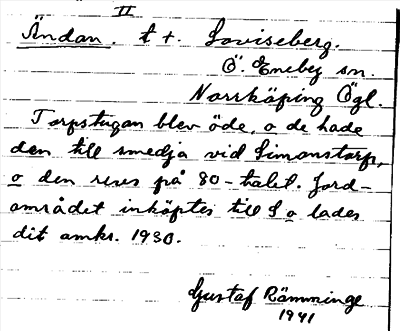 II
Ändan. t t. Loviseberg.
Ö. Eneby sn.
Norrköping Ögl.
Torpstugan blev öde, o de hade
den till smedja vid Simonstorp,
o den revs på 80-talet. Jord-
området inköptes till S o lades
dit omkr. 1930.
Gustaf Rämminge
1941